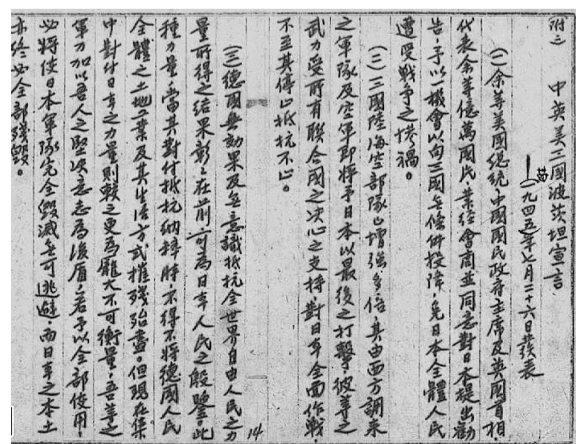 附二 中英美三國波茨坦宣言
——一九四五年七月二十六日發表
(一)余等美國總統,中國國民政府主席及英國首相
代表余等億萬國民,業經會商並同意對日本提出勸
告,予以機會以向三國無條件投降,免日本全體人民
遭受戰爭之横禍。
(二)三國陸海空部隊已增強多倍,其由西方調來
之軍隊及空軍即將予日本以最後之打擊,彼等之
武力受所有联合國之决心之支持對日本全面作戰,
不至其停止抵抗不止。
(三)德國無効果及無意識抵抗全世界自由人民之力
14
量所得之結果彰彰在前,可為日本人民之殷鑒。此
種力量,當其對付抵抗納粹時,不得不將德國人民
全體之土地工業及其生活方式摧殘殆盡。但現在集
中對付日本之力量則較之更為龐大不可衡量,吾等之
軍力加以吾人之堅决意志為後盾,若予以全部使用,
必將使日本軍隊完全毀滅無可逃避,而日本之本土
亦終必全部殘毀。